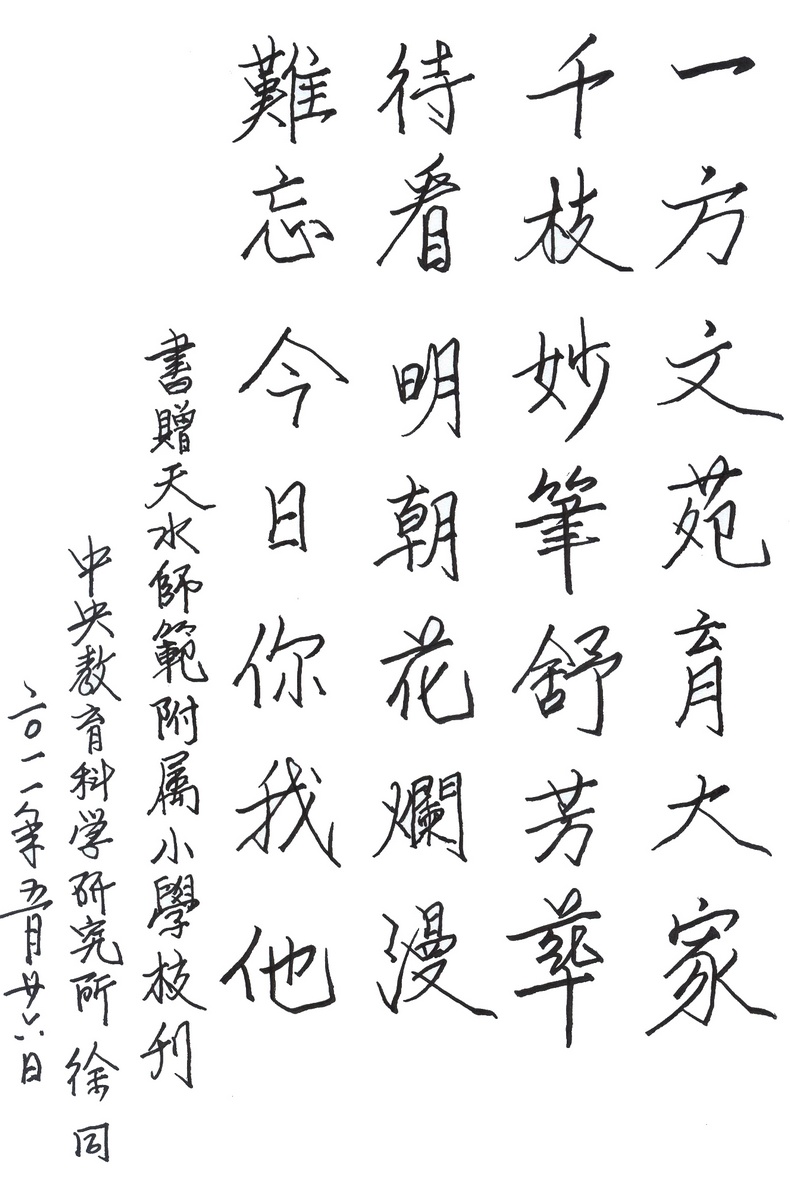 一方文苑育大家
千枝妙筆舒芳華
待看明朝花爛漫
難忘今日你我他
書贈天水師範附属小學校刊
中央教育科学研究所 徐同
二〇一一年五月廿六日